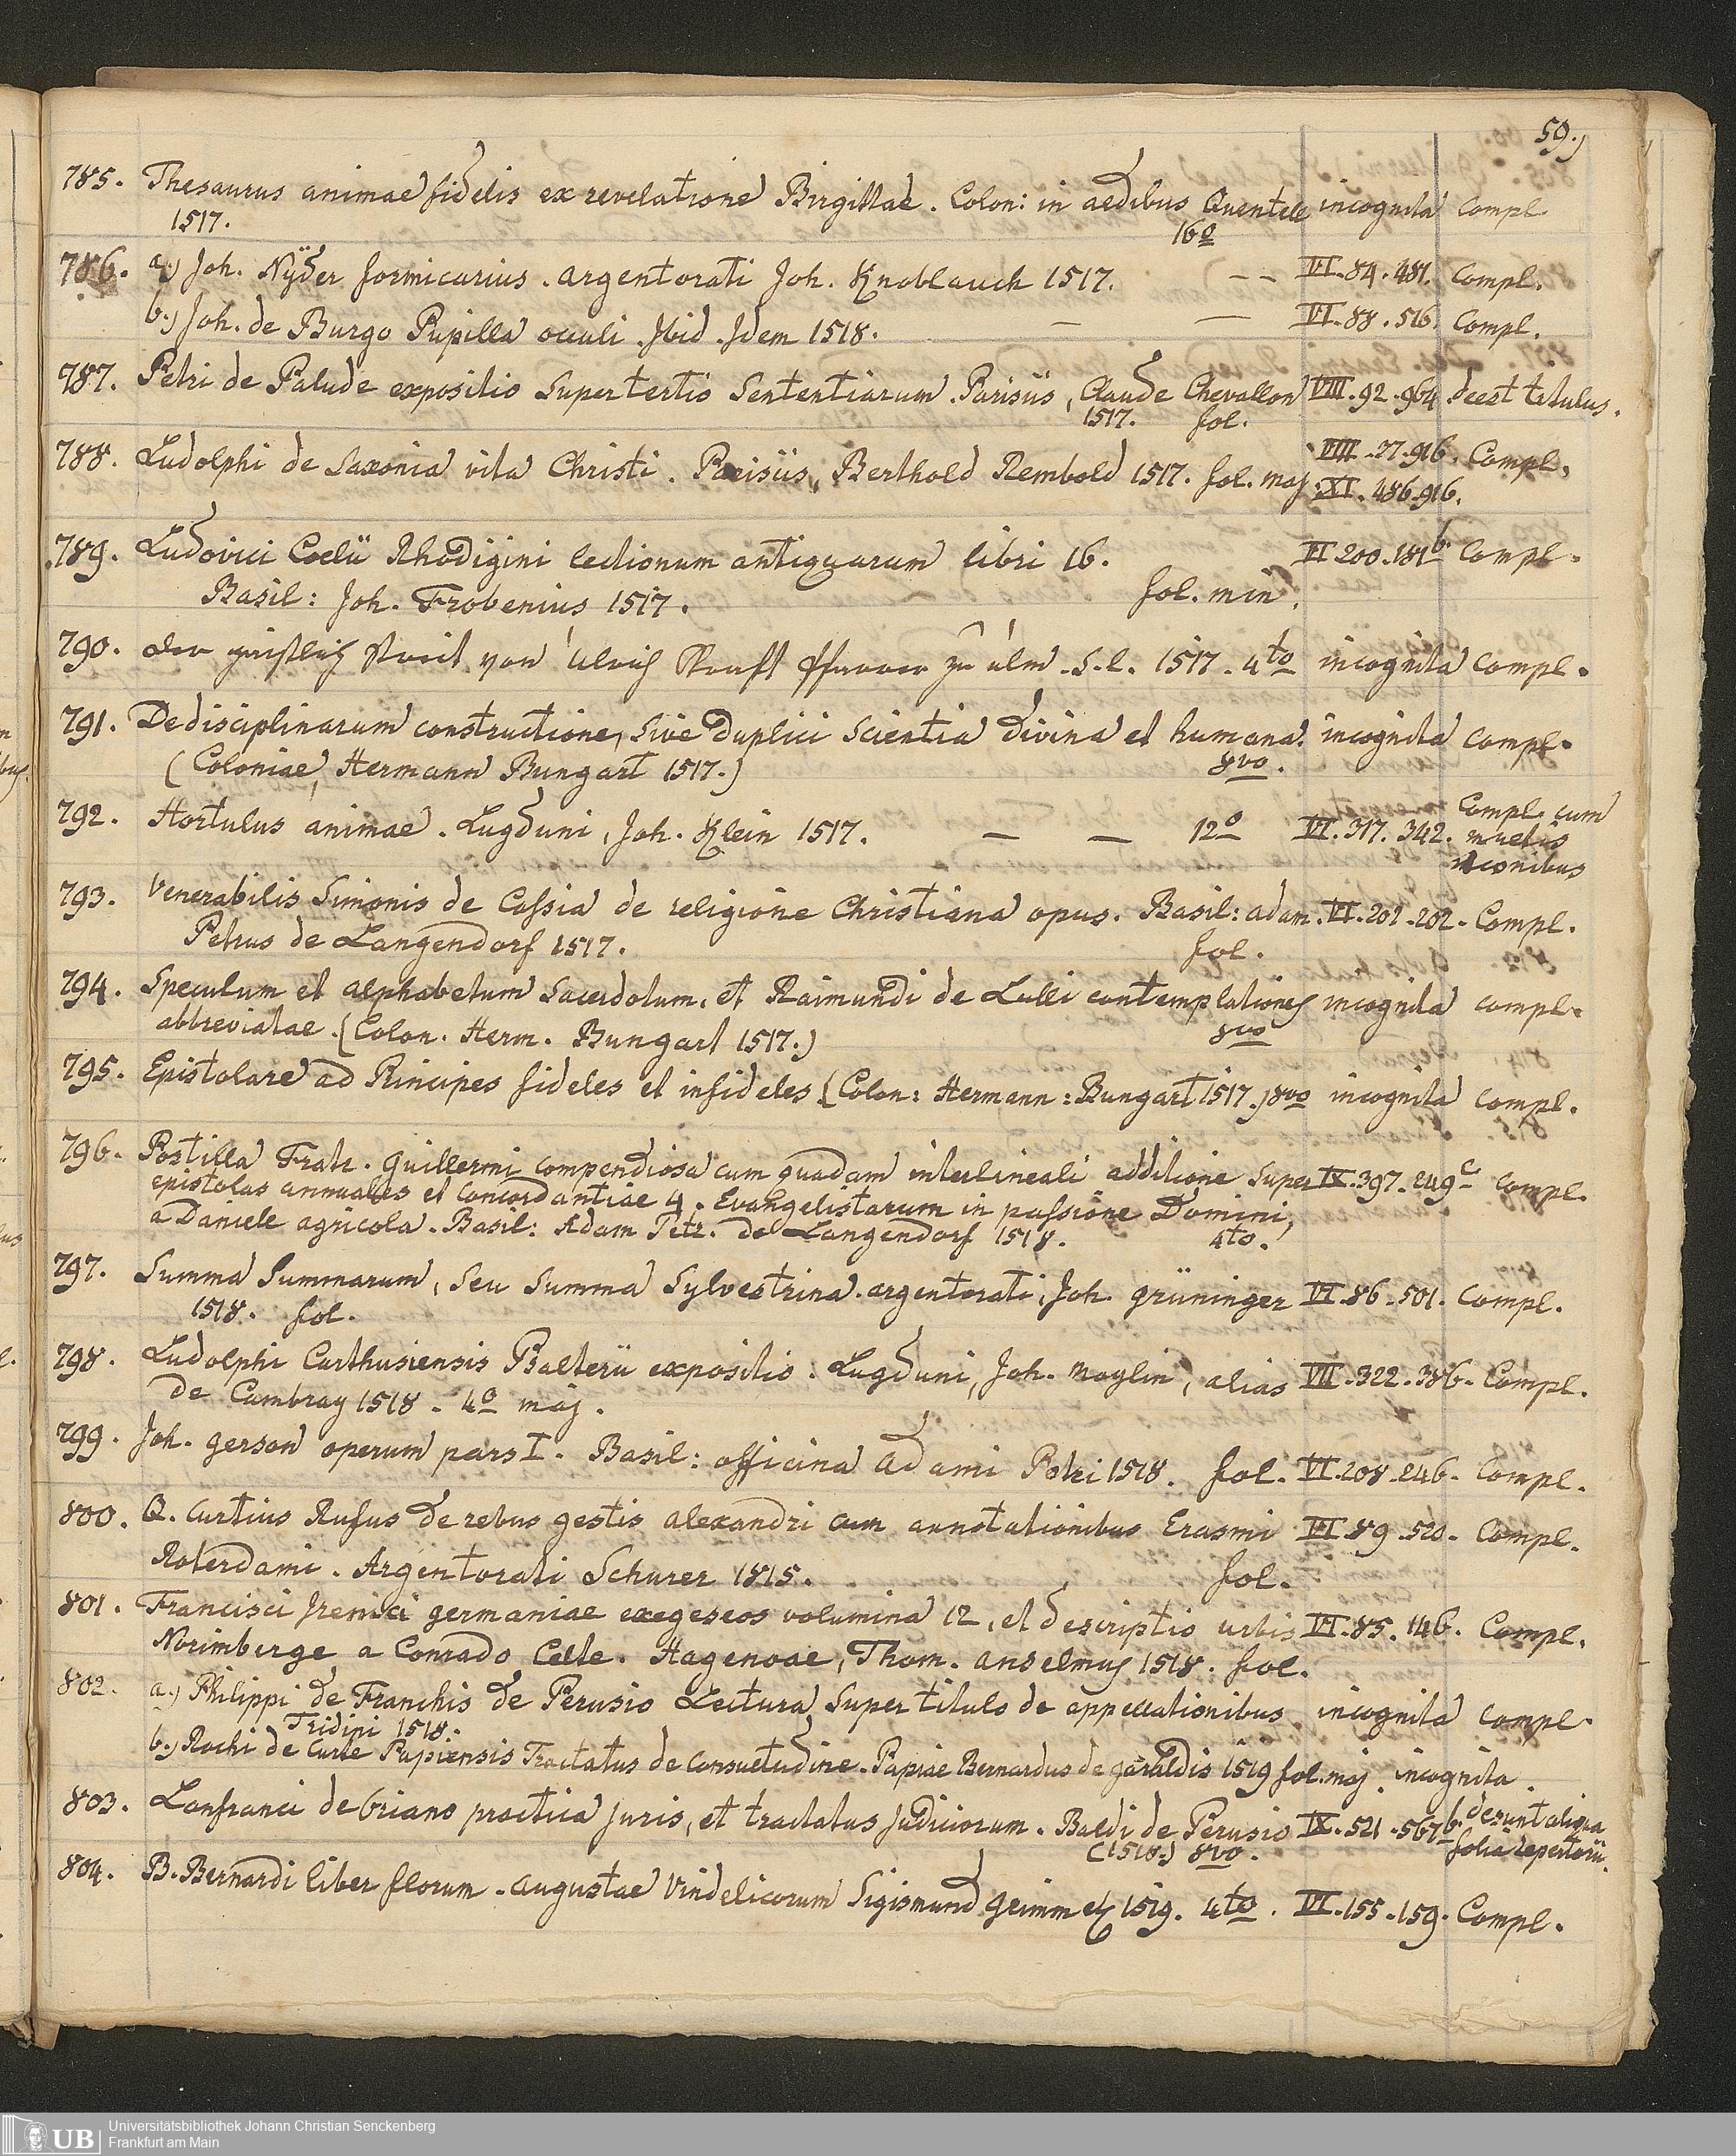 59.)
785. Thesaurus animae fidelis ex revelatione Birgittae. Colon: in aedibus Quentele incognita Compl.
1517. 16o
786. a.) Joh. Nÿder formicarius. argentorati Joh. Knoblauch 1517. — — VI. 84. 481. Compl.
b.) Joh. de Burgo Pupilla oculi. Ibid. Idem 1518. — — VI. 88. 516. Compl.
787. Petri de Palude expositio Super tertio Sententiarum. Parisiis, Claude Chevallon VIII. 92. 964 deest titulus.
1517. fol.
788. Ludolphi de Saxonia vita Christi. Parisiis, Berthold Rembold 1517. fol. maj. VIII. 27. 916. Compl.
XI. 486. 916.
789. Ludovici Coelii Rhodigini lectionum antiquarum libri 16. VI. 200. 181b. Compl.
Basil: Joh. Frobenius 1517. fol. min.
790. der geistlich Streit von Ulrich Krafft Pfarrer zu Ulm. S. l. 1517. 4to incognita Compl.
791. De disciplinarum constructione, Sive Duplici Scientia divina et humana. incognita Compl.
(Coloniae, Hermann Bungart 1517.) 8vo.
792. Hortulus animae. Lugduni, Joh. Klein 1517. — — 12o VI. 317. 342. Compl. cum
multis
iconibus
793. Venerabilis Simonis de Cassia de religione Christiana opus. Basil: adam. VI. 202. 202. Compl.
Petrus de Langendorf 1517. fol.
794. Speculum et alphabetum Sacerdotum, et Raimundi de Lulli contemplationes incognita Compl.
abbreviatae. (Colon. Herm. Bungart 1517.) 8vo
795. Epistolare ad Principes fideles et infideles (Colon: Hermann: Bungart 1517.) 8vo incognita Compl.
796. Postilla Fratr. Guillermi compendiosa cum quadam interlineali additione Super IX. 397. 249c Compl.
epistolas annuales et Concordantiae 4. Evangelistarum in passione Domini,
a Daniele agricola. Basil: Adam Petr. de Langendorf 1518. 4to.
797. Summa Summarum, Seu Summa Sylvestrina. argentorati, Joh. grüninger VI. 86. 501. Compl.
1518. fol.
798. Ludolphi Carthusiensis Psalterii expositio. Lugduni, Joh. Moylin, alias VII. 322. 386. Compl.
de Cambray 1518. 4o maj.
799. Joh. Gerson operum pars I. Basil: officina Adami Petri 1518. fol. VI. 208. 246. Compl.
800. Q. Curtius Rufus de rebus gestis alexandri cum annotationibus Erasmi VI. 89. 520. Compl.
Roterdami. Argentorati Schurer 1815. fol.
801. Francisci Irenici germaniae exegeseos volumina 12, et descriptio urbis VI. 85. 146. Compl.
Norimberge a Conrado Celte. Hagenoae, Thom. anselmus 1518. fol.
802. a.) Philippi de Franchis de Perusio Lectura Super titulo de appellationibus. incognita Compl.
Tridini 1518.
b.) Rochi de Curte Papiensis Tractatus de Consuetudine. Papiae Bernardus de garaldis 1519 fol. maj. incognita.
803. Lanfranci de Oriano practica juris, et tractatus Judiciorum. Baldi de Perusio IX. 521. 567b. desunt aliqua
(1518.) 8vo. folia repertorii.
804. B. Bernardi liber florum. augustae Vindelicorum Sigismund Grimm etc 1519. 4to. VI. 155. 159. Compl.
UB Universitätsbibliothek Johann Christian Senckenberg
Frankfurt am Main